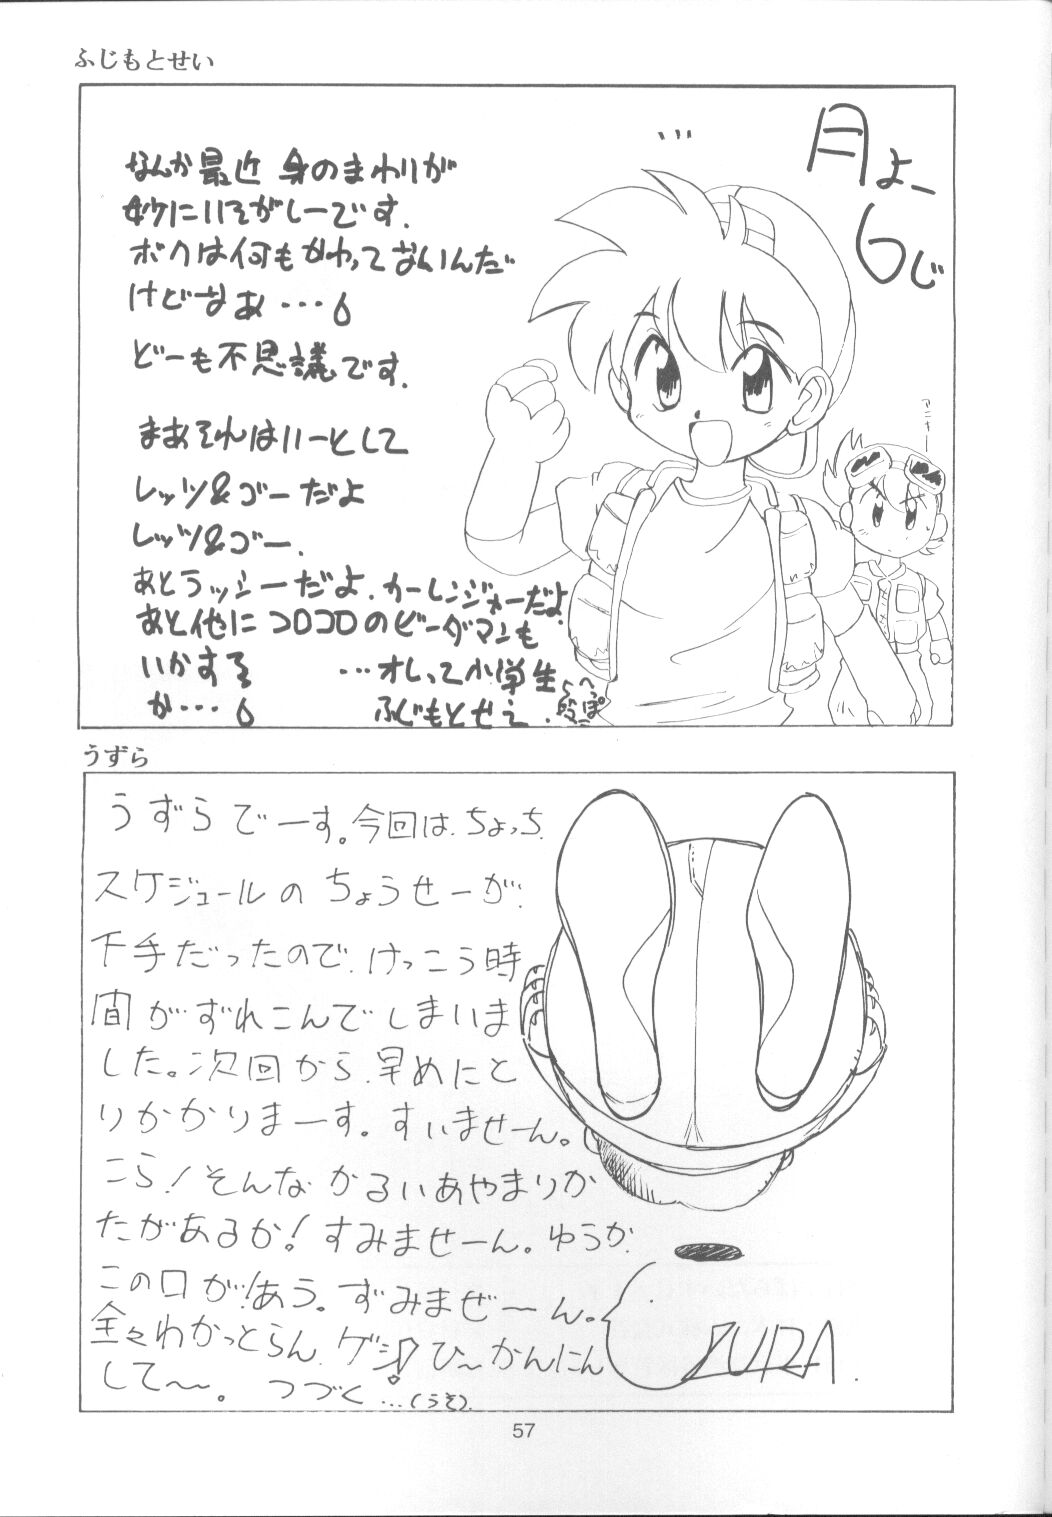 ふじもとせい
月よー
6じ
なんか最近 身のまわりが
妙にいそがしーです.
ボクは何もかわってないんだ
けどなぁ・・・
どーも不思議です.
まあそれはいーとして
レッツ&ゴーだよ
レッツ&ゴー.
あとラッシーだよ.カーレンジャーだよ.
あと他にコロコロのビーダマンも
いかする
か・・・
…オレって小学生
ふじもとせえ.
アニキー
うずら
うずらでーす。今回は、ちょっち、
スケジュールのちょうせーが、
下手だったので、けっこう時
間がずれこんでしまいま
した。次回から、早めにと
りかかりまーす。すいませーん。
こら!そんなかるいあやまりか
たがあるか!すみませーん。ゆうか、
この口が!あう。ずみまぜーん。
全々わかっとらん、ゲシ!ひ〜かんにん
して〜。 つづく…(うそ).
ZURA.
57